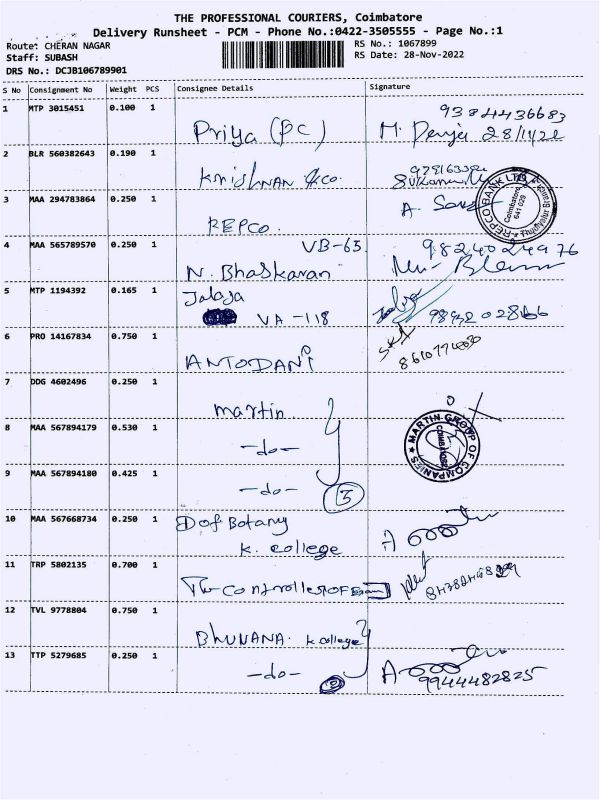 THE PROFESSIONAL COURIERS, Coimbatore
Delivery Runsheet - PCM - Phone No.:0422-3505555 - Page No.:1
Route: CHERAN NAGAR
RS No.: 1067899
Staff: SUBASH
RS Date: 28-Nov-2022
DRS No.: DCJB106789901
S No Consignment No Weight PCS Consignee Details Signature
1 MTP 3015451 0.100 1
Priya (PC) 9384436683
M. 28/11/22
2 BLR 560382643 0.190 1
Krishnan &co.
3 MAA 294783864 0.250 1
REPCO. A.
REPCO BANK LTD
Coimbatore
641 029
4 MAA 565789570 0.250 1
VB-65. 9824024976
N. Bhaskaran
5 MTP 1194392 0.165 1
Jalaja
VA -118
6 PRO 14167834 0.750 1
ANTODANI
7 DDG 4602496 0.250 1
martin.
8 MAA 567894179 0.530 1
-do-
MARTIN GROUP OF COMPANIES
9 MAA 567894180 0.425 1
-do-
3
10 MAA 567668734 0.250 1
D of Botany
K. college
11 TRP 5802135 0.700 1
The Controller OF Exam
12 TVL 9778804 0.750 1
BHUVANA. K college
13 TTP 5279685 0.250 1
-do-
2
9944482825